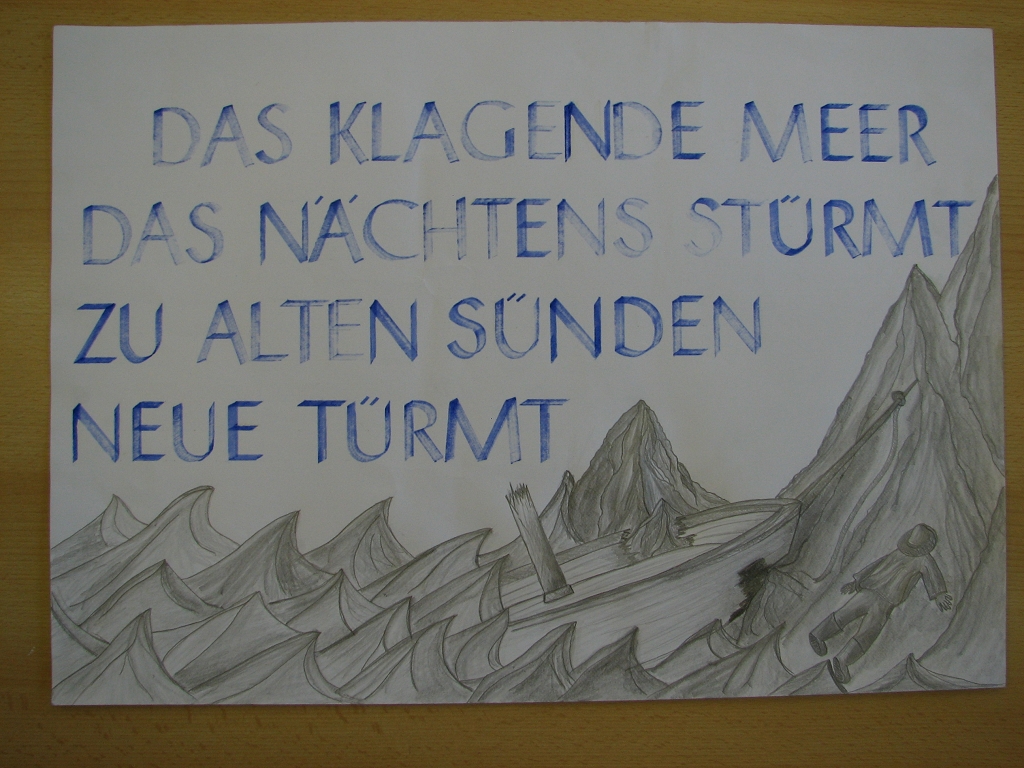 DAS KLAGENDE MEER
DAS NÄCHTENS STÜRMT
ZU ALTEN SÜNDEN
NEUE TÜRMT